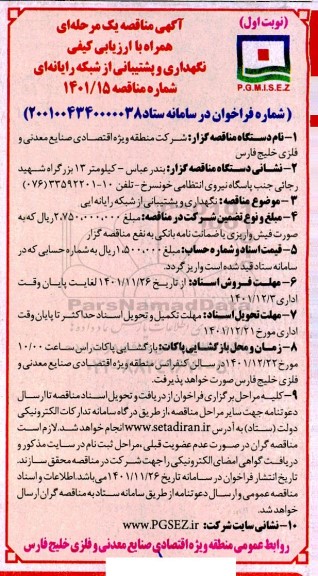 (نوبت اول)
آگهی مناقصه یک مرحله‌ای
همراه با ارزیابی کیفی
نگهداری و پشتیبانی از شبکه رایانه‌ای
شماره مناقصه ۱۴۰۱/۱۵
P.G.M.I.S.E.Z
(شماره فراخوان در سامانه ستاد ۲۰۰۱۰۰۴۳۴۰۰۰۰۰۳۸)
۱- نام دستگاه مناقصه گزار: شرکت منطقه ویژه اقتصادی صنایع معدنی و
فلزی خلیج فارس
۲- نشانی دستگاه مناقصه گزار: بندرعباس - کیلومتر ۱۳ بزرگراه شهید
رجائی جنب پاسگاه نیروی انتظامی خونسرخ - تلفن ۱۰-۳۳۵۹۲۲۰۱ (۰۷۶)
۳- موضوع مناقصه: نگهداری و پشتیبانی از شبکه رایانه ایی
۴- مبلغ و نوع تضمین شرکت در مناقصه: مبلغ ۲.۷۵۰.۰۰۰.۰۰۰ ریال که به
صورت فیش واریزی یا ضمانت نامه بانکی به نفع مناقصه گزار
۵- قیمت اسناد و شماره حساب: مبلغ ۱.۵۰۰.۰۰۰ ریال به شماره حسابی که در
سامانه ستاد قید شده است واریز گردد.
۶- مهلت فروش اسناد: از تاریخ ۱۴۰۱/۱۱/۲۶ لغایت پایان وقت
اداری ۱۴۰۱/۱۲/۳
۷- مهلت تحویل اسناد: مهلت تکمیل و تحویل اسناد حداکثر تا پایان وقت
اداری مورخ ۱۴۰۱/۱۲/۲۱
۸- زمان و محل بازگشایی پاکات: بازگشایی پاکات راس ساعت ۱۰/۰۰
مورخ ۱۴۰۱/۱۲/۲۲ در سالن کنفرانس منطقه ویژه اقتصادی صنایع معدنی و
فلزی خلیج فارس صورت خواهد پذیرفت.
۹- کلیه مراحل برگزاری فراخوان از دریافت و تحویل اسناد مناقصه تا ارسال
دعوتنامه جهت سایر مراحل مناقصه، از طریق درگاه سامانه تدارکات الکترونیکی
دولت (ستاد) به آدرس www.setadiran.ir انجام خواهد شد. لازم است
مناقصه گران در صورت عدم عضویت قبلی، مراحل ثبت نام در سایت مذکور و
دریافت گواهی امضای الکترونیکی را جهت شرکت در مناقصه محقق سازند.
تاریخ انتشار فراخوان در سامانه تاریخ ۱۴۰۱/۱۱/۲۶ می‌باشد. اطلاعات و اسناد
مناقصه عمومی و ارسال دعوتنامه از طریق سامانه ستاد به مناقصه گران ارسال
خواهد شد.
۱۰- نشانی سایت شرکت: www.PGSEZ.ir
روابط عمومی منطقه ویژه اقتصادی صنایع معدنی و فلزی خلیج فارس